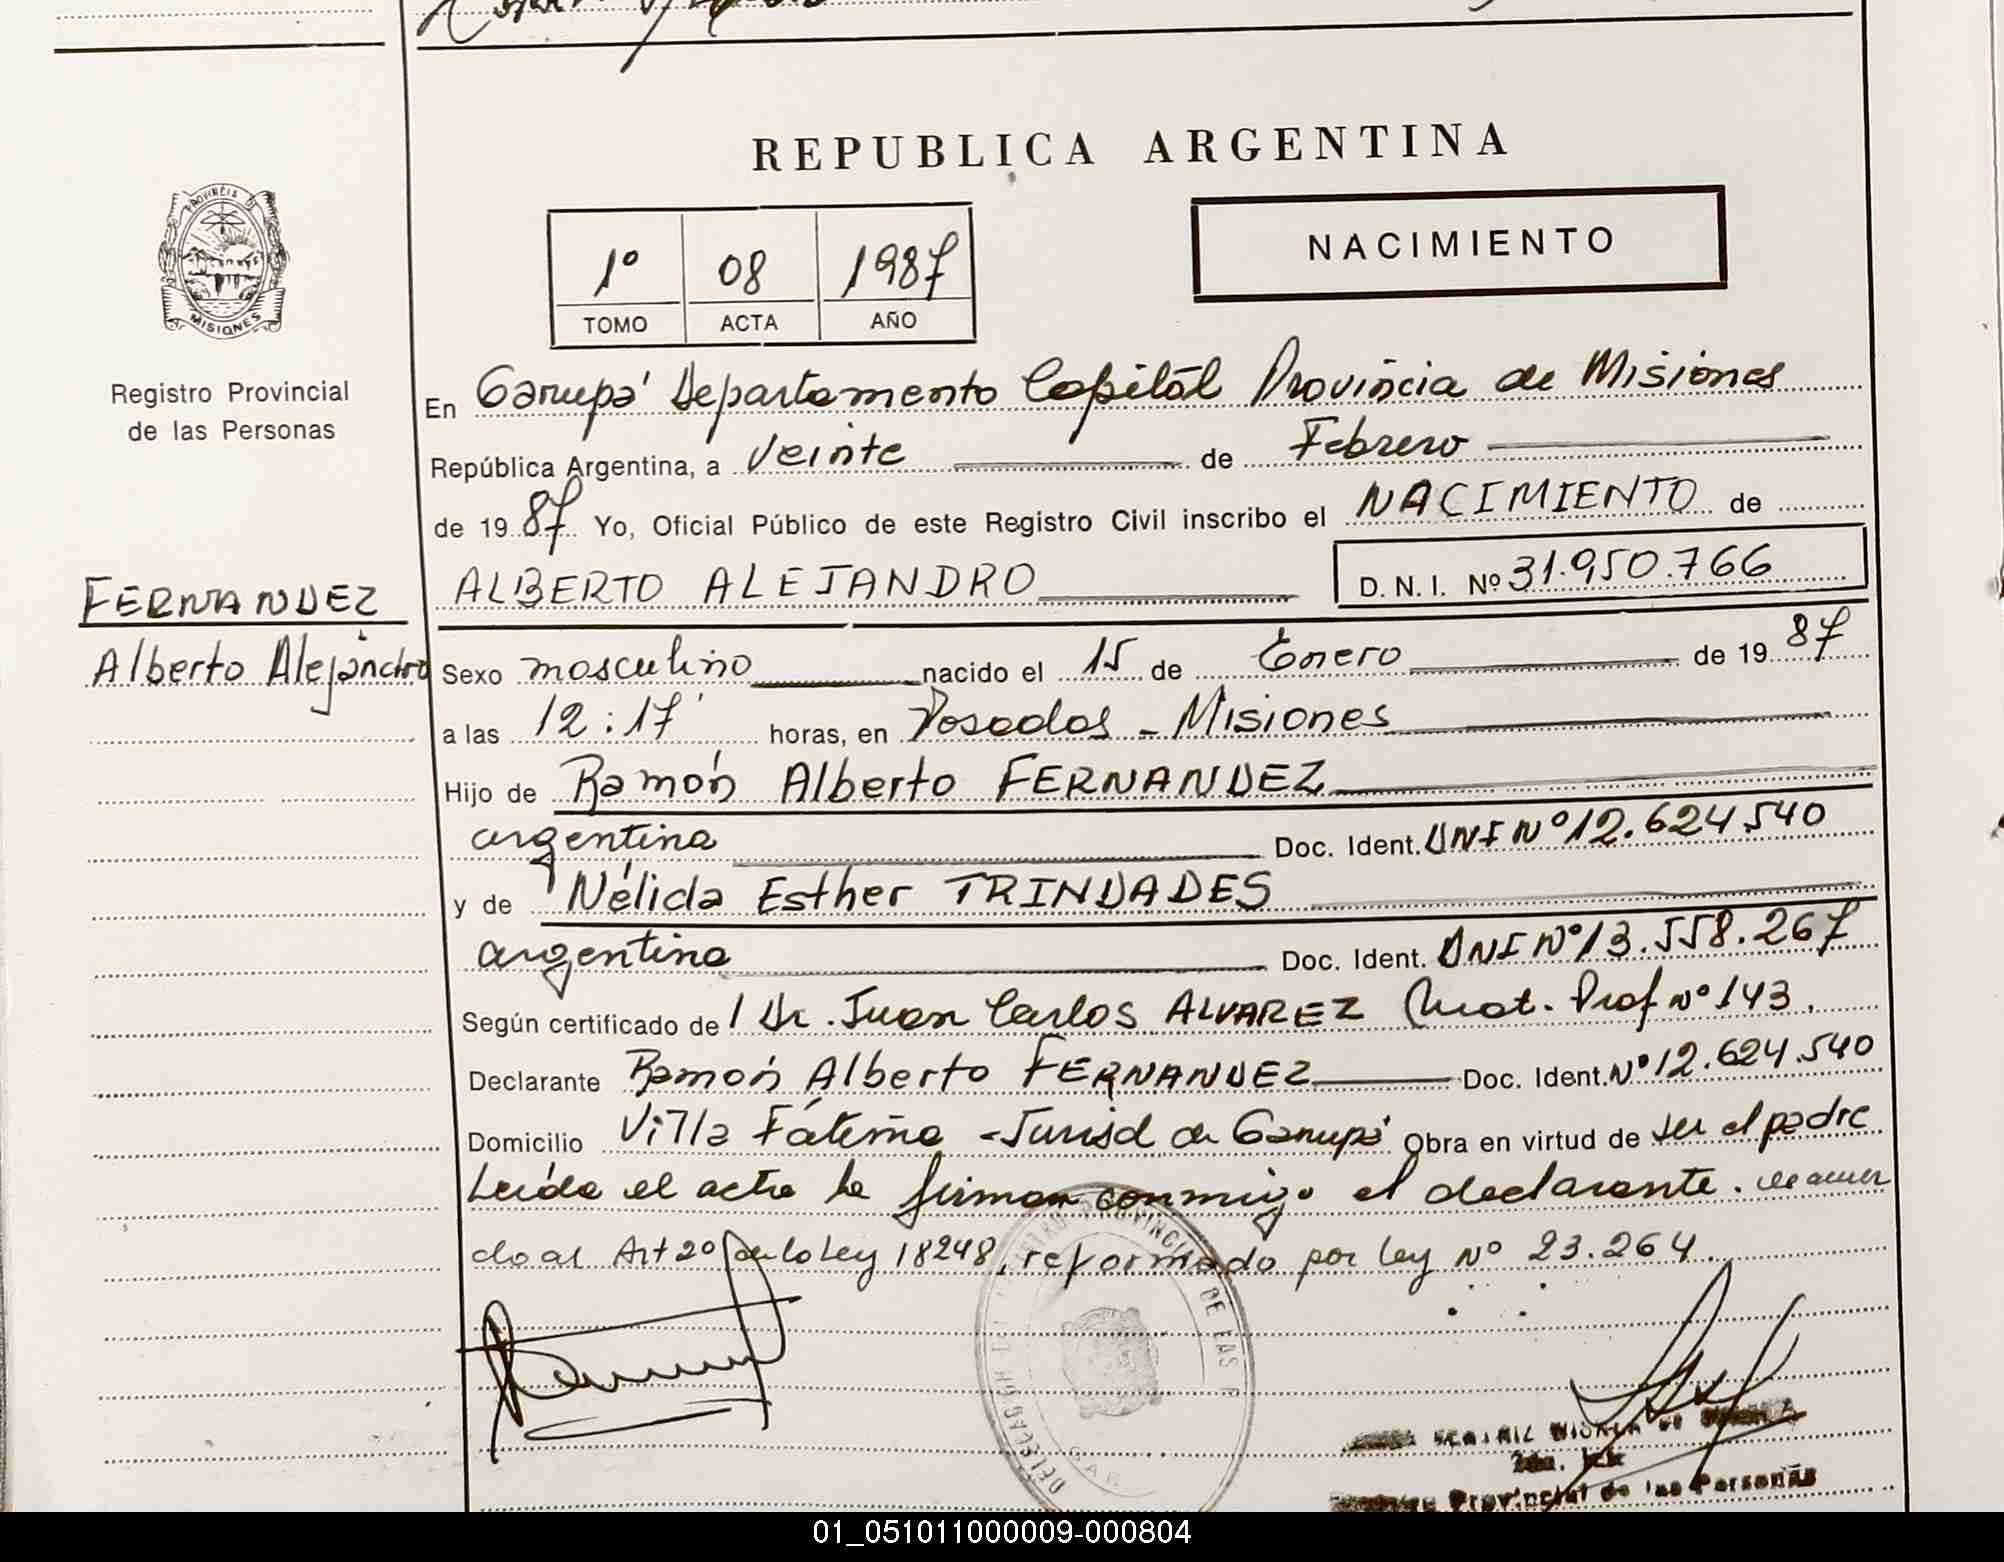 REPUBLICA ARGENTINA
PROVINCIA D
MISIONES
1º 08 1987
TOMO ACTA AÑO
NACIMIENTO
Registro Provincial
de las Personas
En Garupá Departamento Capital Provincia de Misiones
República Argentina, a Veinte de Febrero
de 19 87 Yo, Oficial Público de este Registro Civil inscribo el NACIMIENTO de
FERNANDEZ
Alberto Alejandro
ALBERTO ALEJANDRO D. N. I. Nº 31.950.766
Sexo masculino nacido el 15 de Enero de 19 87
a las 12:17' horas, en Posadas - Misiones
Hijo de Ramón Alberto FERNANDEZ
argentina Doc. Ident. DNI Nº 12.624.540
y de Nélida Esther TRINDADES
argentina Doc. Ident. DNI Nº 13.558.267
Según certificado de Dr. Juan Carlos ALVAREZ Mat. Prof Nº 143.
Declarante Ramón Alberto FERNANDEZ Doc. Ident. Nº 12.624.540
Domicilio Villa Fátima - Jurisd de Garupá Obra en virtud de ser el padre
Leída el acta la firman conmigo el declarante. de acuer
do al Art 2º de la Ley 18248, reformado por Ley Nº 23.264
PROVINCIAL DE LAS P
DELEGACION
Provincial de las Personas
01_051011000009-000804